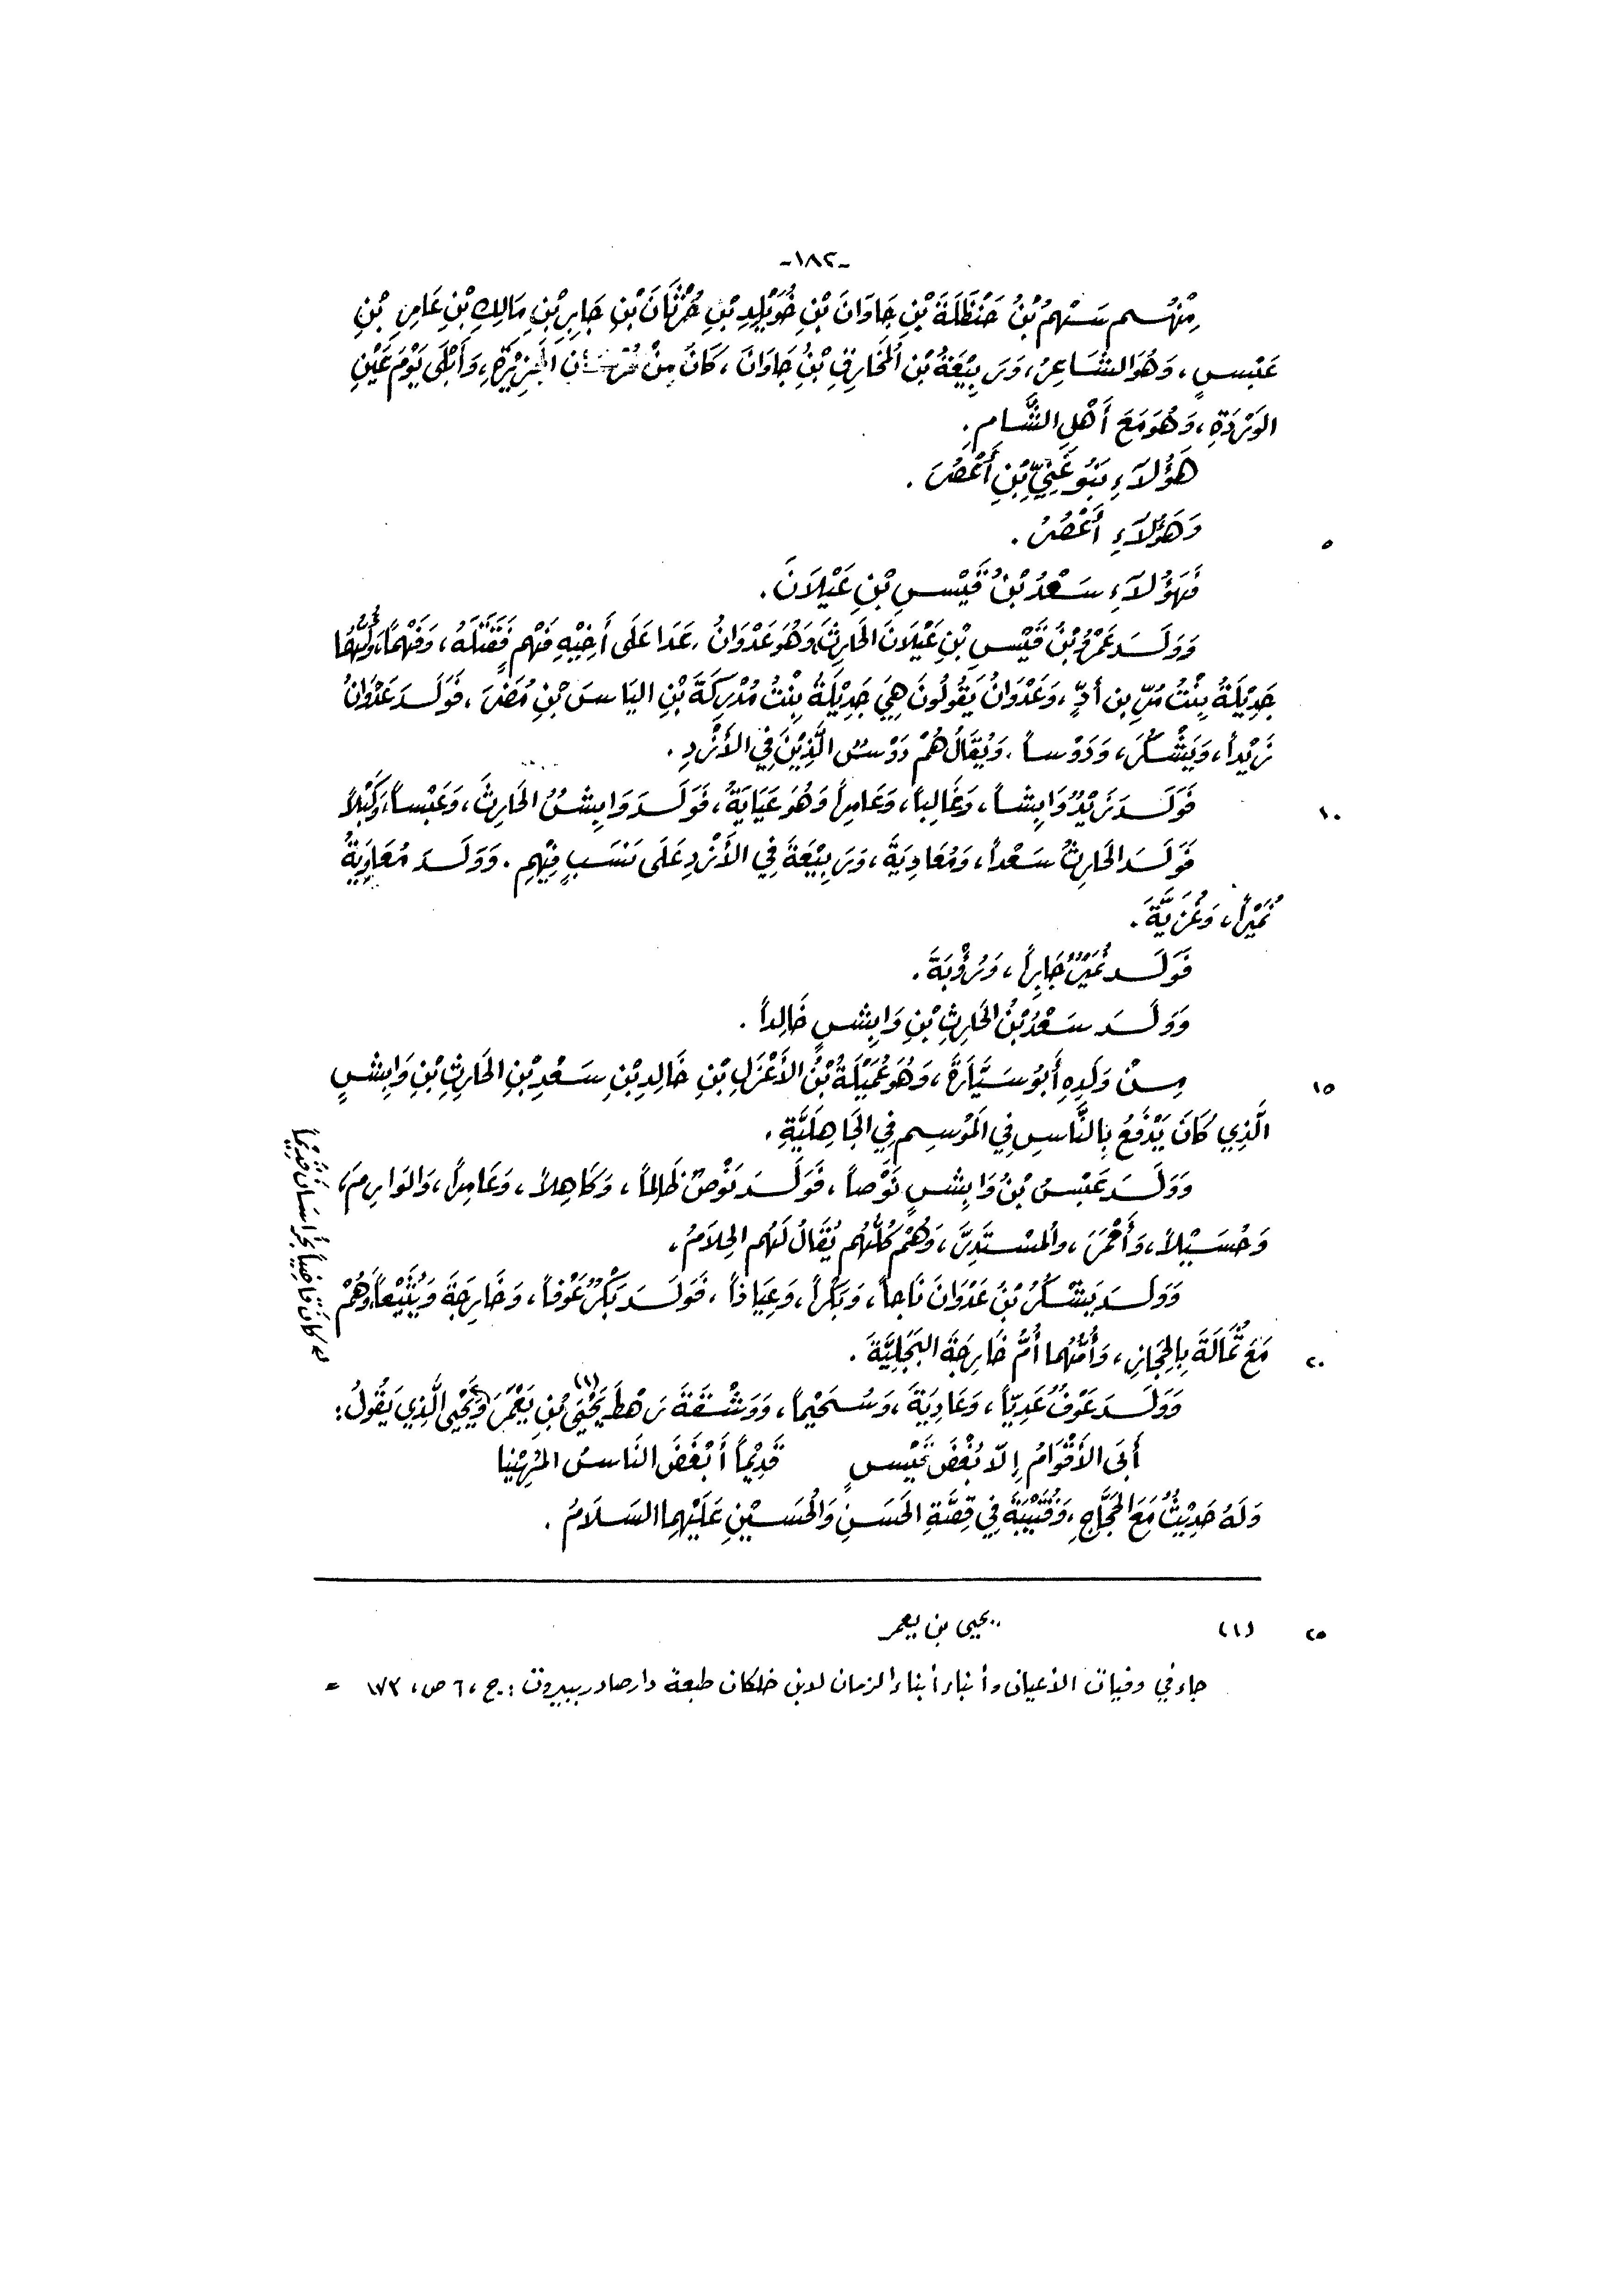 -١٨٢-
مِنْهُم سَهْمُ بْنُ حَنْظَلَةَ بْنِ جَاوَانَ بْنِ خُوَيْلِدِ بْنِ حُرْثَانَ بْنِ جَابِرِ بْنِ مَالِكِ بْنِ عَامِرِ بْنِ
عَبْسٍ، وَهُوَ الشَّاعِرُ، وَرَبِيْعَةُ بْنُ المُخَارِقِ بْنِ جَاوَانَ، كَانَ مِنْ فُرْسَانِ الجَزِيْرَةِ، وَأَبْلَى يَوْمَ عَيْنِ
الوَرْدَةِ، وَهُوَ مَعَ أَهْلِ الشَّامِ.
هَؤُلَاءِ بَنُو غَنِيِّ بْنِ أَعْصُرَ.
وَهَؤُلَاءِ أَعْصُرُ.
٥
فَهَؤُلَاءِ سَعْدُ بْنُ قَيْسِ بْنِ عَيْلَانَ.
وَوَلَدَ عَمْرُو بْنُ قَيْسِ بْنِ عَيْلَانَ الحَارِثَ وَهُوَ عَدْوَانُ، عَدَا عَلَى أَخِيْهِ فَهْمٍ فَقَتَلَهُ، وَفَهْماً، وَأُمُّهُمَا
جَدِيْلَةُ بِنْتُ مُرِّ بن أُدٍّ، وَعَدْوَانُ يَقُولُونَ هِيَ جَدِيْلَةُ بِنْتُ مُدْرِكَةَ بْنِ اليَاسَ بْنِ مُضَرَ، فَوَلَدَ عَدْوَانُ
زَيْداً، وَيَشْكُرَ، وَدَوْساً، وَيُقَالُ هُمْ دَوْسُ الَّذِيْنَ فِي الأَزْدِ.
فَوَلَدَ زَيْدٌ وَابِشاً، وَغَالِباً، وَعَامِراً وَهُوَ عَيَايَةُ، فَوَلَدَ وَابِشُ الحَارِثَ، وَعَبْساً، وَكَبْلاً
١٠
فَوَلَدَ الحَارِثُ سَعْداً، وَمُعَاوِيَةَ، وَرَبِيْعَةَ فِي الأَزْدِ عَلَى نَسَبٍ فِيْهِم. وَوَلَدَ مُعَاوِيَةُ
نُمَيْراً، وَغُزَيَّةَ.
فَوَلَدَ نُمَيْرٌ جَابِراً، وَرُؤْبَةَ.
وَوَلَدَ سَعْدُ بْنُ الحَارِثِ بْنِ وَابِشٍ خَالِداً.
مِنْ وَلَدِهِ أَبُو سَيَّارَةَ، وَهُوَ عُمَيْلَةُ بْنُ الأَعْزَلِ بْنِ خَالِدِ بْنِ سَعْدِ بْنِ الحَارِثِ بْنِ وَابِشٍ
١٥
الَّذِي كَانَ يَدْفَعُ بِالنَّاسِ فِي المَوْسِمِ فِي الجَاهِلَيَّةِ.
وَوَلَدَ عَبْسُ بْنُ وَابِشٍ نَوْصاً، فَوَلَدَ نَوْصٌ ظَالِماً، وَكَاهِلاً، وَعَامِراً، وَالوَارِمَ،
وَحُسَيْلاً، وَأَحْمَرَ، وَالمُسْتَدِرَّ، وَهُمْ كُلُّهُم يُقَالُ لَهُم الجِلَامُ.
وَوَلَدَ يَشْكُرُ بْنُ عَدْوَانَ نَاجاً، وَبَكْراً، وَعِيَاذاً، فَوَلَدَ بَكْرٌ عَوْفاً، وَخَارِجَةَ وَيُثَيْعاً وَهُمْ
مَعَ ثُمَالَةَ بِالحِجَازِ، وَأُمُّهُمَا أُمُّ خَارِجَةَ البَجَلِيَّةَ.
٢٠
وَوَلَدَ عَوْفٌ عَدِيّاً، وَعَادِيَةَ، وَسُحَيْماً، وَوَشْقَةَ رَهْطَ يَحْيَى(١) بْنِ يَعْمَرَ، وَيَحْيَى الَّذِي يَقُولُ:
أَبَى الأَقْوَامُ إِلّا بُغْضَ قَيْسٍ قَدِيْماً أَبْغَضَ النَاسُ المُهِيْنَا
وَلَهُ حَدِيْثٌ مَعَ الحَجَّاجِ، وَقُتَيْبَةَ فِي قِصَّةِ الحَسَنِ وَالحُسَيْنِ عَلَيْهِمَا السَلَامُ.
كَانَ قَاضِياً بِخُرَاسَانَ قَدِيْماً
(١) يحيى بن يعمر
٢٥
جاء في وفيات الأعيان وأنباء أبناء الزمان لابن خلكان طبعة دار صادر ببيروت: ج، ٦ ص، ١٧٣ =